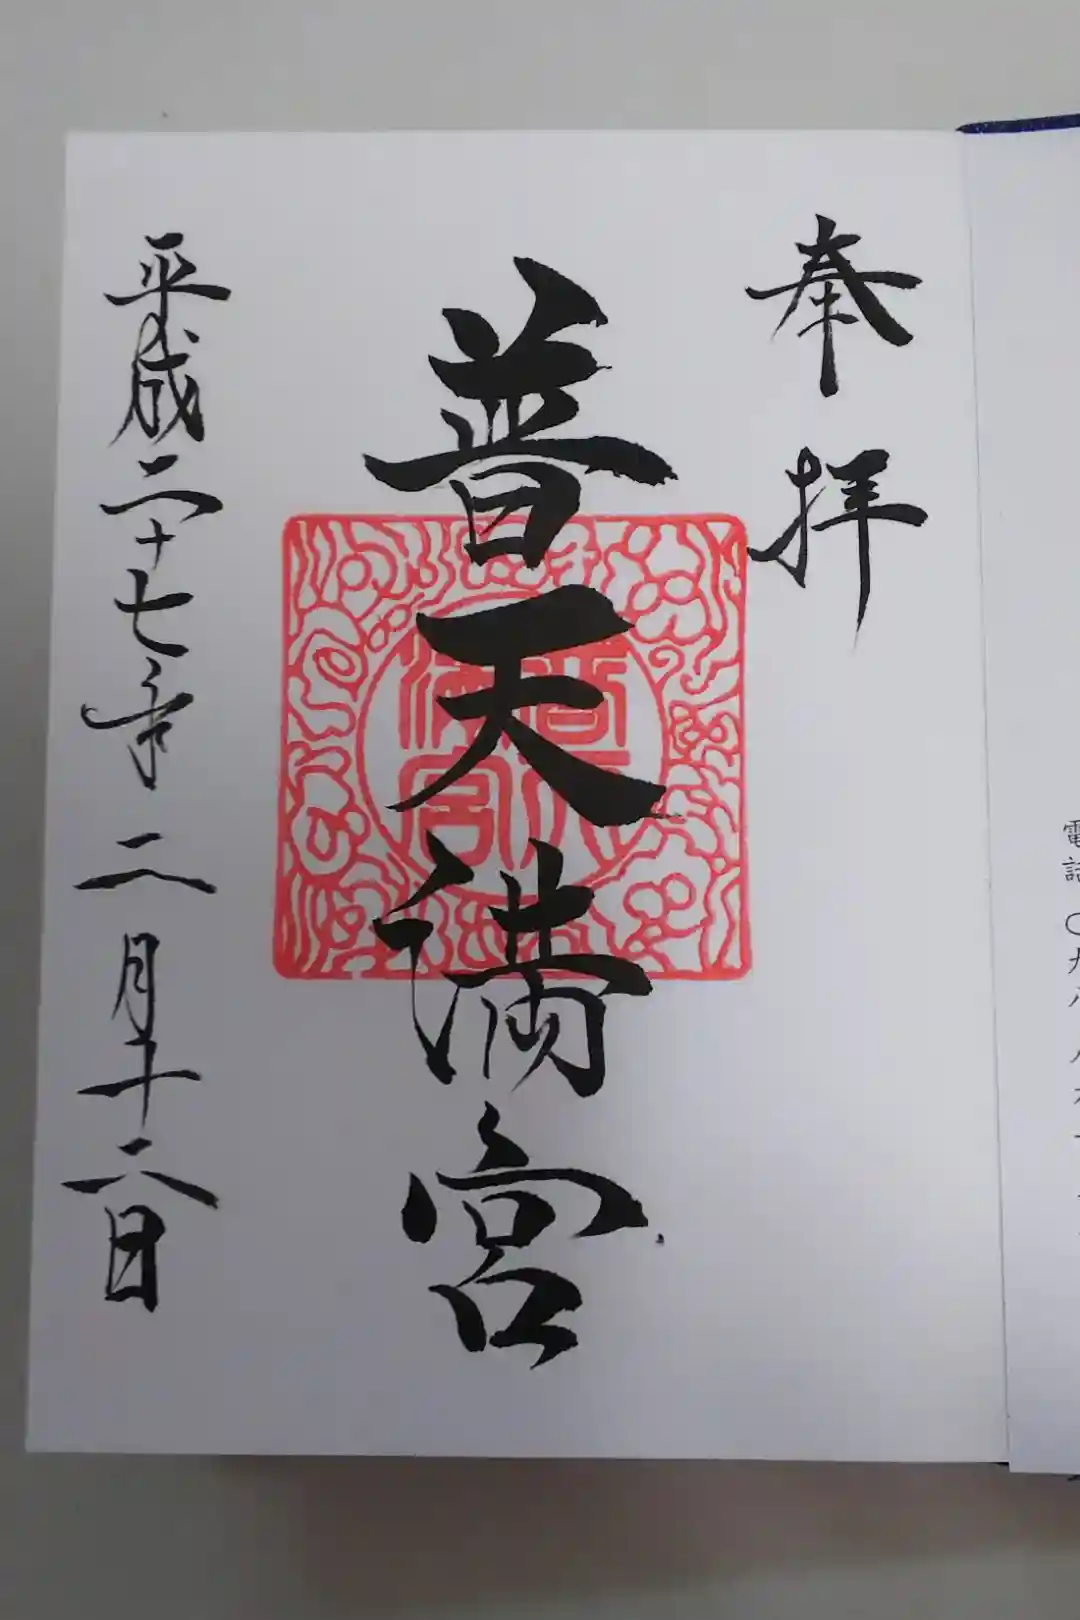 奉拝
普天満宮
平成二十七年二月十六日
普天
満宮
電話〇九八